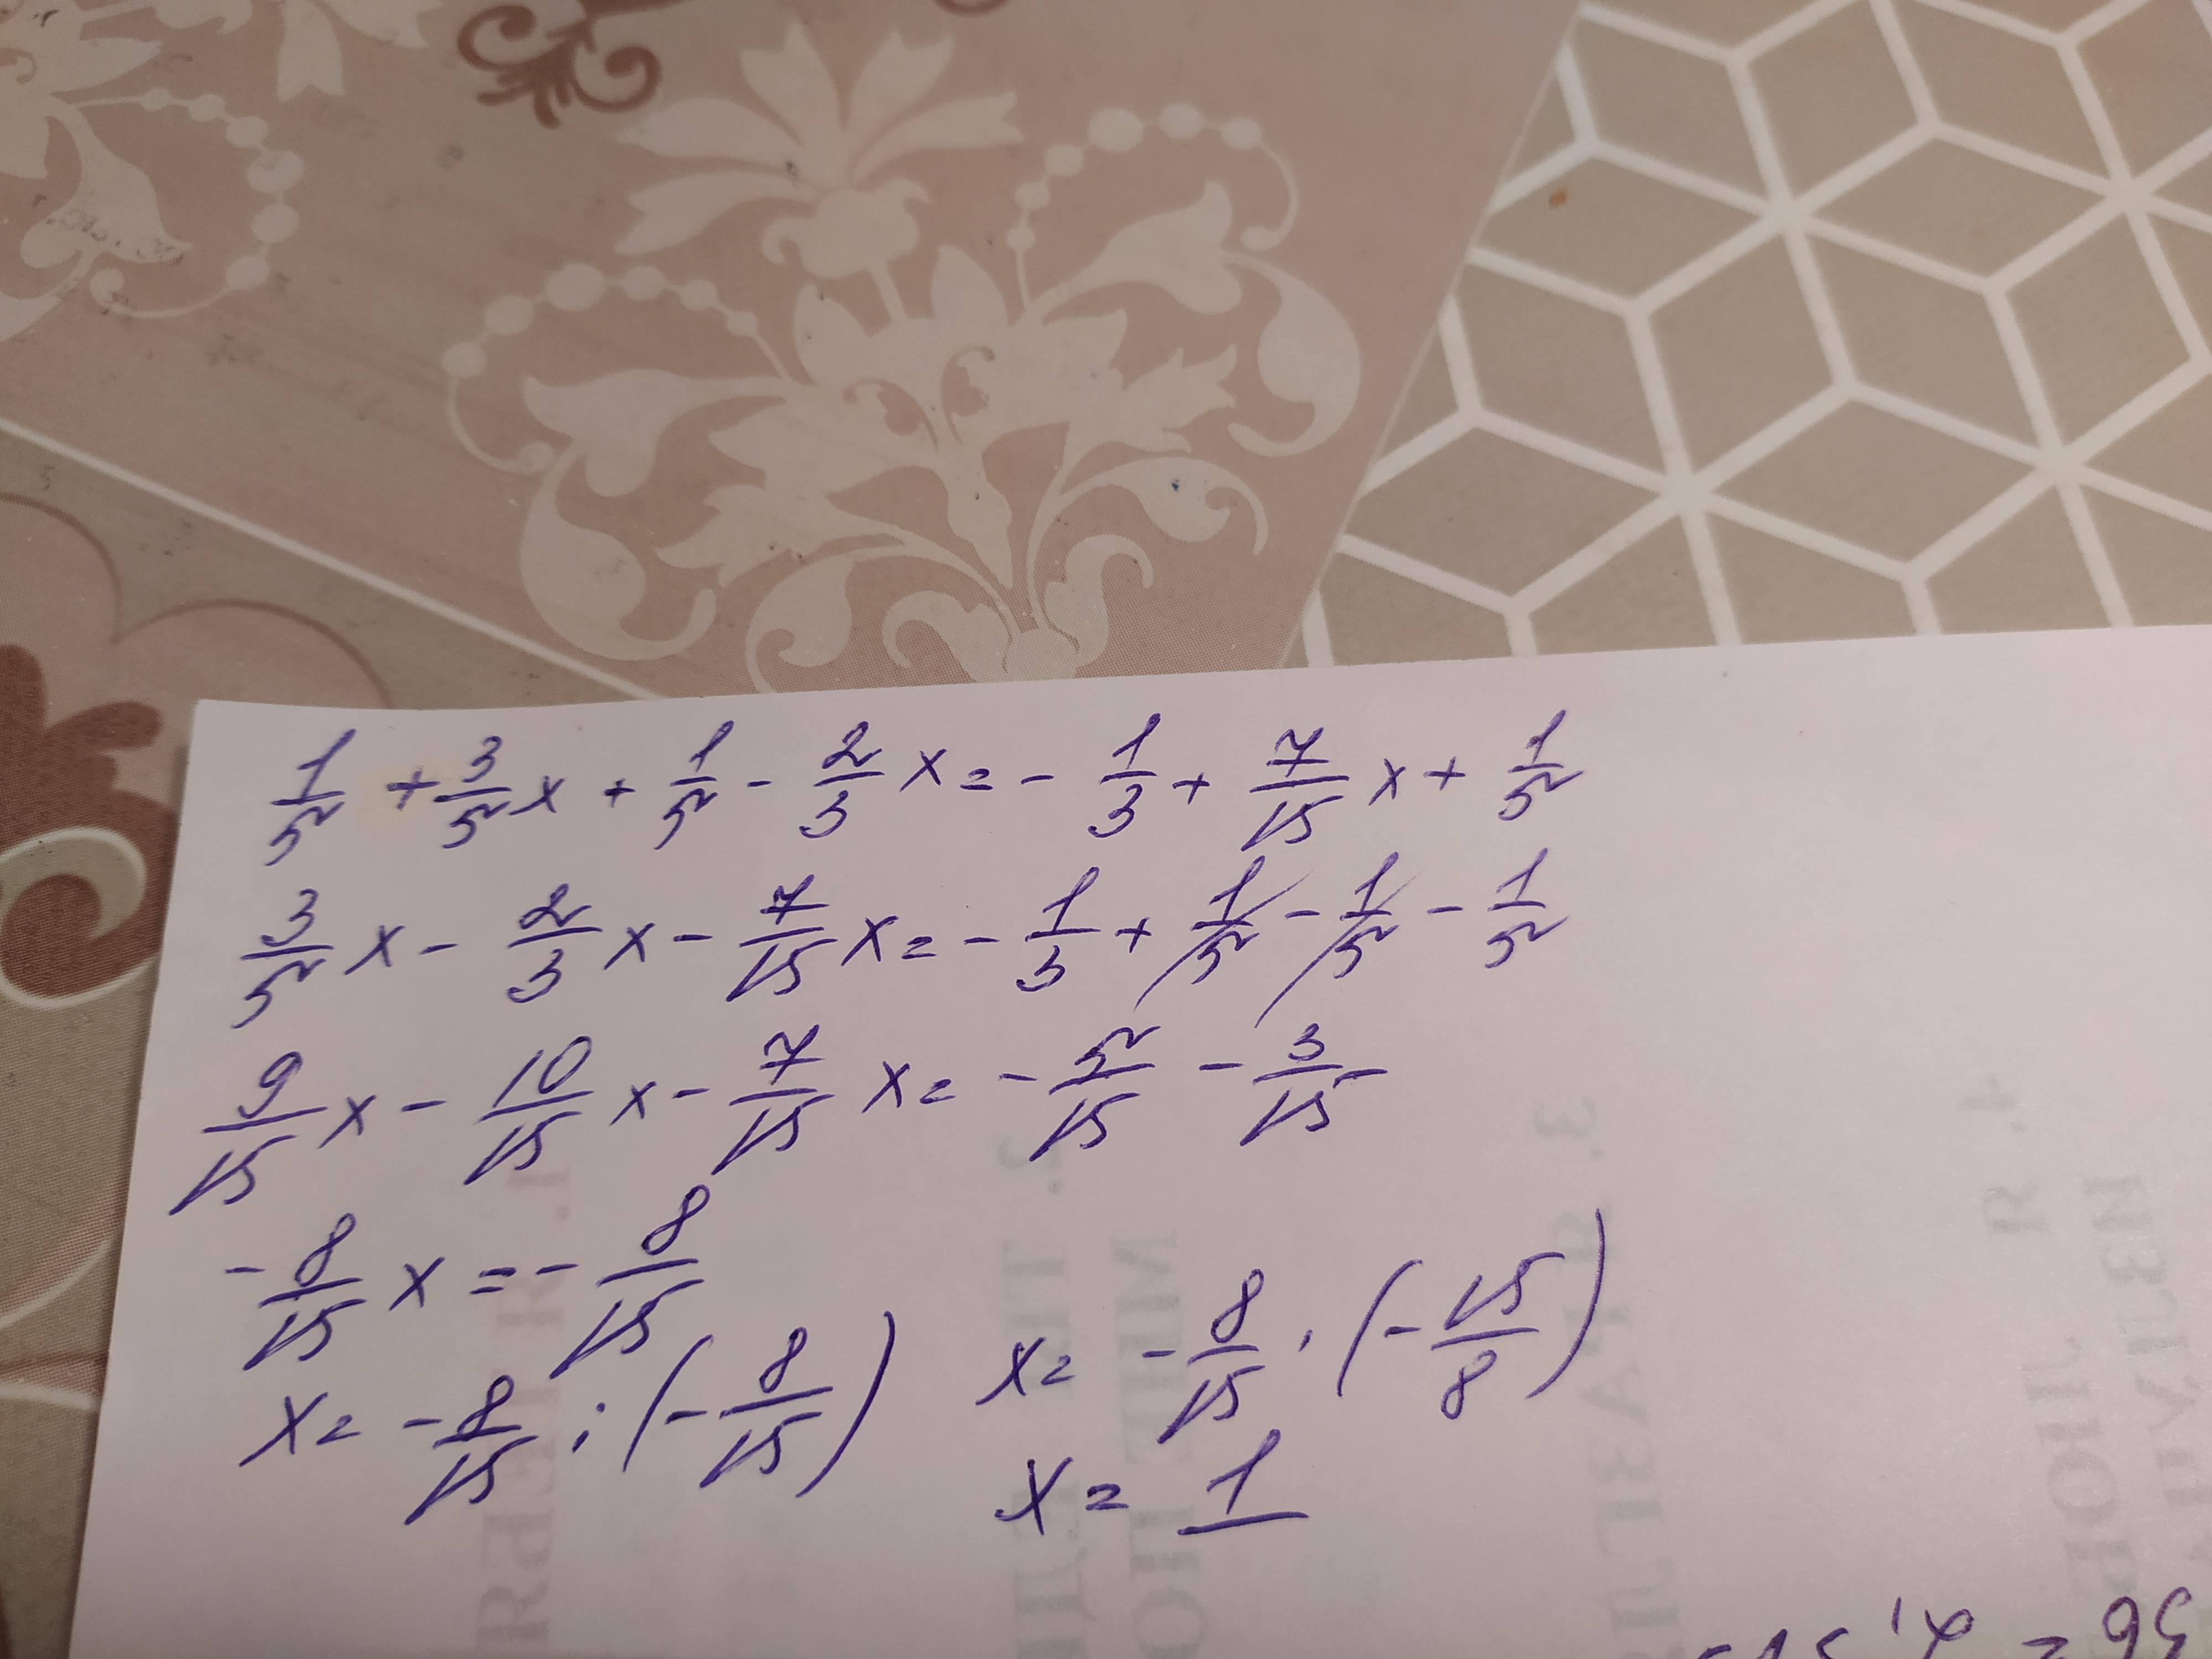 1/5 + 3/5 x + 1/5 - 2/3 x = - 1/3 + 7/15 x + 1/5
3/5 x - 2/3 x - 7/15 x = - 1/3 + 1/5 - 1/5 - 1/5
9/15 x - 10/15 x - 7/15 x = - 5/15 - 3/15
- 8/15 x = - 8/15
x = - 8/15 : (- 8/15)
x = - 8/15 · (- 15/8)
x = 1